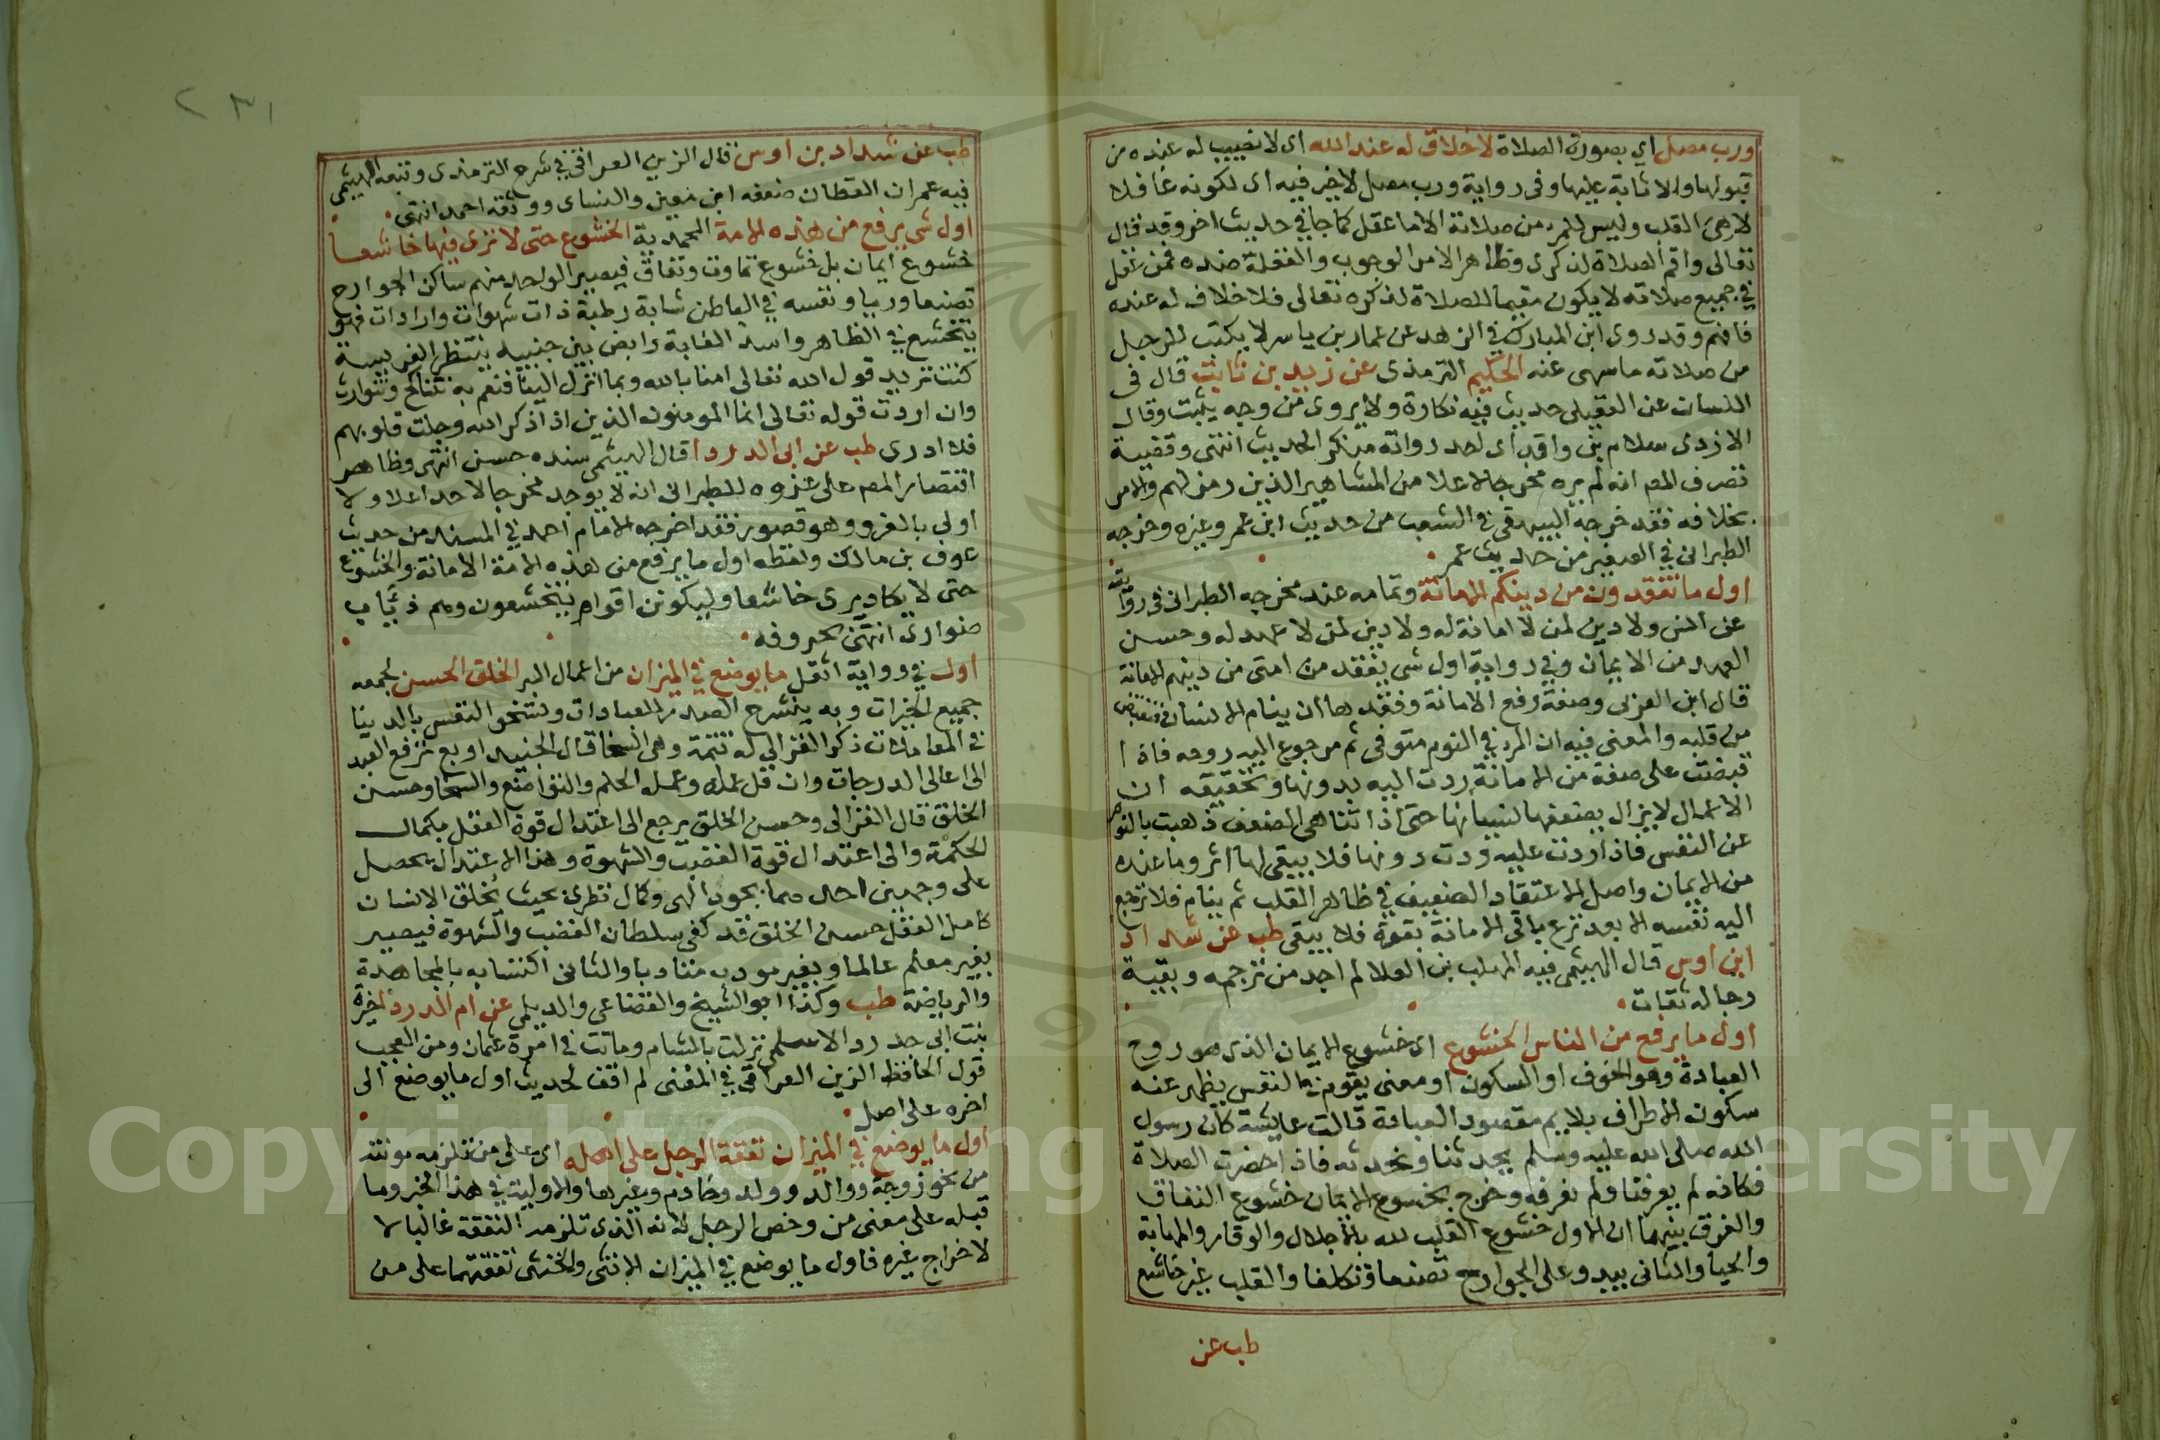 ورب مصل اي بصورة الصلاة لا خلاق له عند الله اى لا نصيب له عنده من
قبولها والاثابة عليها وفى رواية ورب مصل لا خير فيه اى لكونه غافلا
لاهى القلب وليس للمرء من صلاته الا ما عقل كما جا في حديث اخر وقد قال
تعالى واقم الصلاة لذكرى وظاهر الامر الوجوب والغفلة ضده فمن غفل
في جميع صلاته لا يكون مقيما للصلاة لذكره تعالى فلا خلاف له عنده
فافهم وقد روى ابن المبارك في الزهد عن عمار بن ياسر لا يكتب للرجل
من صلاته ما سهى عنه الحكيم الترمذى عن زيد بن ثابت قال فى
اللسان عن العقيلى حديث فيه نكارة ولا يروى من وجه يثبت وقال
الازدى سلام بن واقد اى احد رواته منكر الحديث انتهى وقضية
تصرف المص انه لم يره مخرجا لاعلا من المشاهير الذين رمز لهم والامر
بخلافه فقد خرجه البيهقى في الشعب من حديث ابن عمر وغيره وخرجه
الطبرانى في الصغير من حديث عمر
اول ما تفقدون من دينكم الامانة وتمامه عند مخرجه الطبرانى فى رواية
عن انس ولا دين لمن لا امانة له ولا دين لمن لا عهد له وحسن
العهد من الايمان وفي رواية اول شى يفقد من امتى من دينهم الامانة
قال ابن العربى وصفة رفع الامانة وفقدها ان ينام الانسان فتقبض
من قلبه والمعنى فيه ان المرء في النوم متوفى ثم مرجوع اليه روحه فاذا
قبضت على صفة من الامانة ردت اليه بدونها وتحقيقه ان
الاعمال لا يزال يضعفها نسيانها حتى اذا تناهى الضعف ذهبت بالنوم
عن النفس فاذا ردت عليه ردت دونها فلا يبقى لها اثر وما عنده
من الايمان واصل الاعتقاد الضعيف في ظاهر القلب ثم ينام فلا ترجع
اليه نفسه الا بعد نزع باقى الامانة بقوة فلا يبقى طب عن شداد
ابن اوس قال الهيثمى فيه المهلب بن العلا لم اجد من ترجمه وبقية
رجاله ثقات
اول ما يرفع من الناس الخشوع اى خشوع الايمان الذى هو روح
العبادة وهو الخوف او السكون او معنى يقوم في النفس يظهر عنه
سكون الاطراف يلايم مقصود العبادة قالت عايشة كان رسول
الله صلى الله عليه وسلم يحدثنا ونحدثه فاذا حضرت الصلاة
فكانه لم يعرفنا ولم نعرفه وخرج بخشوع الايمان خشوع النفاق
والفرق بينهما ان الاول خشوع القلب لله بالاجلال والوقار والمهابة
والحيا والثانى يبدو على الجوارح تصنعا وتكلفا والقلب غير خاشع
طب عن
٢٣١
طب عن شداد بن اوس قال الزين العراقى في شرح الترمذى وتبعه الهيثمى
فيه عمران القطان ضعفه ابن معين والنساى ووثقه احمد انتهى
اول شى يرفع من هذه الامة المحمدية الخشوع حتى لا ترى فيها خاشعا
خشوع ايمان بل خشوع تماوت ونفاق فيصير الواحد منهم ساكن الجوارح
تصنعا وريا ونفسه في الباطن شابة رطبة ذات شهوات وارادات فهو
يتخشع في الظاهر واسد الغابة رابض بين جنبيه ينتظر الفريسة
كنت تريد قول الله تعالى امنا بالله وبما انزل الينا فنعم به نتناكح ونتوارث
وان اردت قوله تعالى انما المومنون الذين اذا ذكر الله وجلت قلوبهم
فلا ادرى طب عن ابى الدردا قال الهيثمى سنده حسن انتهى وظاهر
اقتصار المص على عزوه للطبرانى انه لا يوجد مخرجا لاحد اعلا ولا
اولى بالعزو وهو قصور فقد اخرجه الامام احمد في المسند من حديث
عوف بن مالك ولفظه اول ما يرفع من هذه الامة الامانة والخشوع
حتى لا يكاد يرى خاشعا وليكونن اقوام يتخشعون وهم ذئاب
ضوارى انتهى بحروفه
اول في رواية اثقل ما يوضع في الميزان من اعمال البر الخلق الحسن لجمعه
جميع الخيرات وبه ينشرح الصدر للعبادات وتسخو النفس بالدينا
في المعاملات ذكر الغزالى له تتمة وهى السخا قال الجنيد اربع ترفع العبد
الى اعالى الدرجات وان قل عمله وعمله الحلم والتواضع والسخا وحسن
الخلق قال الغزالى وحسن الخلق يرجع الى اعتدال قوة العقل بكمال
الحكمة والى اعتدال قوة الغضب والشهوة وهذا الاعتدال يحصل
على وجهين احدهما بجود الهى وكمال نظرى بحيث يخلق الانسان
كامل العقل حسن الخلق قد كفى سلطان الغضب والشهوة فيصير
بغير معلم عالما وبغير مودب متادبا والثانى اكتسابه بالمجاهدة
والرياضة طب وكذا ابو الشيخ والقضاعى والديلمى عن ام الدردا خيرة
بنت ابى حدرد الاسلمى نزلت بالشام وماتت في امرة عثمان ومن العجب
قول الحافظ الزين العراقى في المغنى لم اقف لحديث اول ما يوضع الى
اخره على اصل
اول ما يوضع في الميزان نفقة الرجل على اهله اى على من تلزمه مونته
من نحو زوجة ووالد وولد وخادم وغيرها والاولية في هذا الخبر وما
قبله على معنى من وخص الرجل لانه الذى تلزمه النفقة غالبا لا
لاخراج غيره فاول ما يوضع في الميزان الانثى والخنثى نفقتهما على من
Copyright © King Saud University